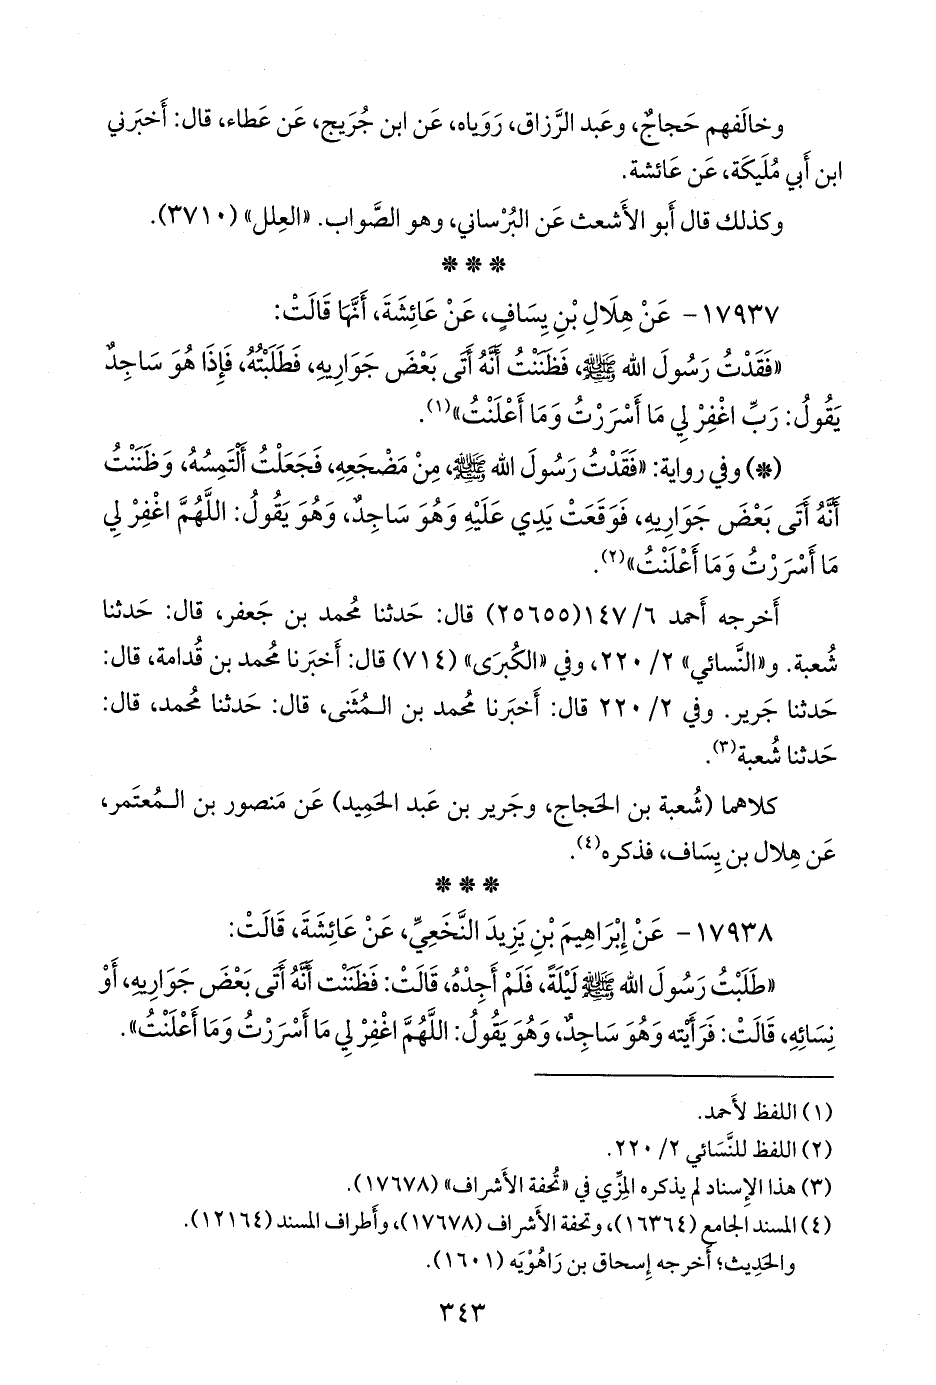 وخالَفهم حَجاجٌ، وعَبد الرَّزاق، رَوَياه، عَن ابن جُرَيج، عَن عَطاء، قال: أَخبَرني
ابن أَبي مُلَيكَة، عَن عَائشة.
وكذلك قال أَبو الأَشعث عَن البُرْساني، وهو الصَّواب. «العِلل» (٣٧١٠).
* * *
١٧٩٣٧- عَنْ هِلَالِ بْنِ يِسَافٍ، عَنْ عَائِشَةَ، أَنَّهَا قَالَتْ:
«فَقَدْتُ رَسُولَ الله ﷺ، فَظَنَنْتُ أَنَّهُ أَتَى بَعْضَ جَوَارِيهِ، فَطَلَبْتُهُ، فَإِذَا هُوَ سَاجِدٌ
يَقُولُ: رَبِّ اغْفِرْ لِي مَا أَسْرَرْتُ وَمَا أَعْلَنْتُ»(١).
(*) وفي رواية: «فَقَدْتُ رَسُولَ الله ﷺ، مِنْ مَضْجَعِهِ، فَجَعَلْتُ أَلْتَمِسُهُ، وَظَنَنْتُ
أَنَّهُ أَتَى بَعْضَ جَوَارِيهِ، فَوَقَعَتْ يَدِي عَلَيْهِ وَهُوَ سَاجِدٌ، وَهُوَ يَقُولُ: اللَّهُمَّ اغْفِرْ لِي
مَا أَسْرَرْتُ وَمَا أَعْلَنْتُ»(٢).
أَخرجه أَحمد ٦/ ١٤٧(٢٥٦٥٥) قال: حَدثنا مُحمد بن جَعفر، قال: حَدثنا
شُعبة. و«النَّسائي» ٢/ ٢٢٠، وفي «الكُبرَى» (٧١٤) قال: أَخبَرنا مُحمد بن قُدامة، قال:
حَدثنا جَرير. وفي ٢/ ٢٢٠ قال: أَخبَرنا مُحمد بن الـمُثَنى، قال: حَدثنا مُحمد، قال:
حَدثنا شُعبة(٣).
كلاهما (شُعبة بن الحَجاج، وجَرير بن عَبد الحَمِيد) عَن مَنصور بن الـمُعتَمر،
عَن هِلال بن يِسَاف، فذكره(٤).
* * *
١٧٩٣٨- عَنْ إِبْرَاهِيمَ بْنِ يَزِيدَ النَّخَعِيِّ، عَنْ عَائِشَةَ، قَالَتْ:
«طَلَبْتُ رَسُولَ الله ﷺ لَيْلَةً، فَلَمْ أَجِدْهُ، قَالَتْ: فَظَنَنْت أَنَّهُ أَتَى بَعْضَ جَوَارِيهِ، أَوْ
نِسَائِهِ، قَالَتْ: فَرَأَيْته وَهُوَ سَاجِدٌ، وَهُوَ يَقُولُ: اللَّهُمَّ اغْفِرْ لِي مَا أَسْرَرْتُ وَمَا أَعْلَنْتُ».
(١) اللفظ لأَحمد.
(٢) اللفظ للنَّسَائي ٢/ ٢٢٠.
(٣) هذا الإِسناد لم يذكره المِزِّي في «تُحفة الأَشراف» (١٧٦٧٨).
(٤) المسند الجامع (١٦٣٦٤)، وتحفة الأَشراف (١٧٦٧٨)، وأَطراف المسند (١٢١٦٤).
والحَدِيث؛ أَخرجه إِسحاق بن رَاهُوْيَه (١٦٠١).
٣٤٣